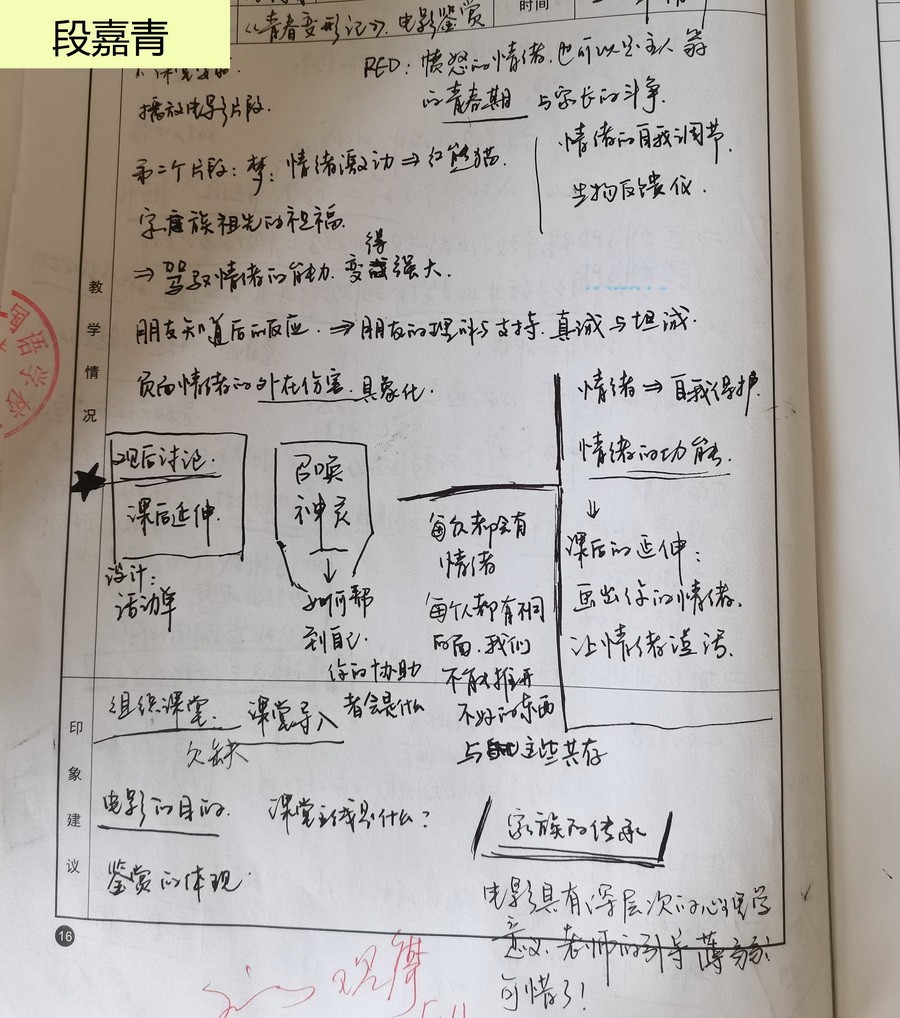 段嘉青
《青春变形记》.电影鉴赏
时间
播放电影片段.
RED: 愤怒的情绪.也可以是主人翁
的青春期 与家长的斗争.
第二个片段: 梦: 情绪激动⇒红熊猫.
情绪的自我调节.
生物反馈仪.
家族祖先的祝福.
⇒驾驭情绪的能力.变得强大.
朋友知道后的反应.⇒朋友的理解与支持.真诚与坦诚.
负向情绪的外在伤害.具象化.
教学情况
观后讨论.
课后延伸.
设计:
活动单
召唤
神灵
↓
如何帮
到自己.
你的协助
者会是什么
每个人都会有
情绪
每个人都有不同
的面.我们
不能推开
不好的东西
与这些共存
情绪⇒自我保护
情绪的功能.
↓
课后的延伸:
画出你的情绪.
让情绪说话.
印象建议
组织课堂. 课堂导入
欠缺
电影的目的. 课堂主线是什么?
鉴赏的体现.
家族的传承
电影具有深层次的心理学
意义.老师的引导薄弱.
可惜了!
16